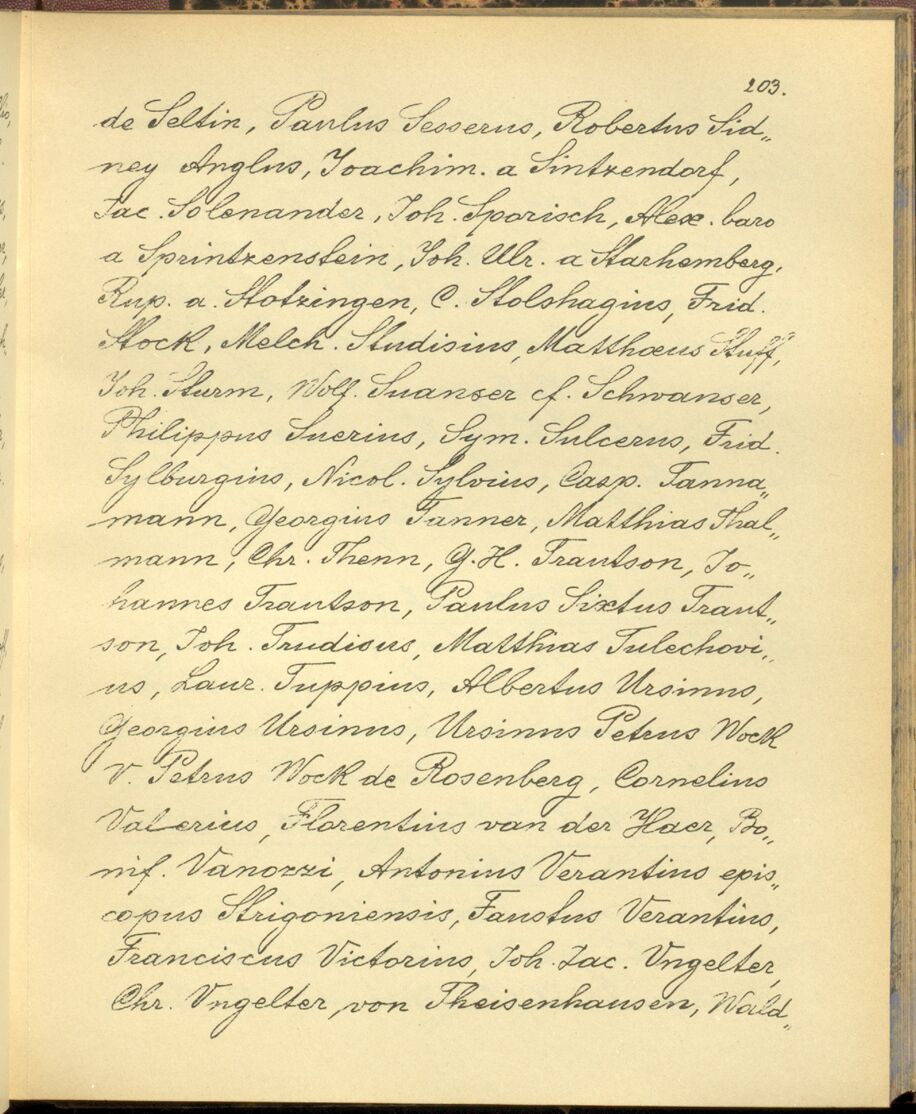 203.
de Seltin, Paulus Sesserus, Robertus Sid„
ney Anglus, Joachim. a Sintzendorf,
Jac. Solenander, Joh. Sporisch, Alex. baro
a Sprintzenstein, Joh. Ulr. a Starhemberg,
Rup. a. Stotzingen, C. Stolshagius, Frid.
Stock, Melch. Studisius, Matthæus Stuff,
Joh. Sturm, Wolf. Suanser cf. Schwanser,
Philippus Suerius, Sym. Sulcerus, Frid.
Sylburgius, Nicol. Sylvius, Casp. Tanna„
mann, Georgius Tanner, Matthias Thal„
mann, Chr. Thenn, G. H. Trautson, Jo„
hannes Trautson, Paulus Sixtus Traut„
son, Joh. Trudisus, Matthias Tulechovi„
us, Laur. Tuppius, Albertus Ursinus,
Georgius Ursinus, Ursinus Petrus Wock
v. Petrus Wock de Rosenberg, Cornelius
Valerius, Florentius van der Haer, Bo„
nif. Vanozzi, Antonius Verantius epis„
copus Strigoniensis, Faustus Verantius,
Franciscus Victorius, Joh. Jac. Vngelter,
Chr. Vngelter, von Theisenhausen, Wald„